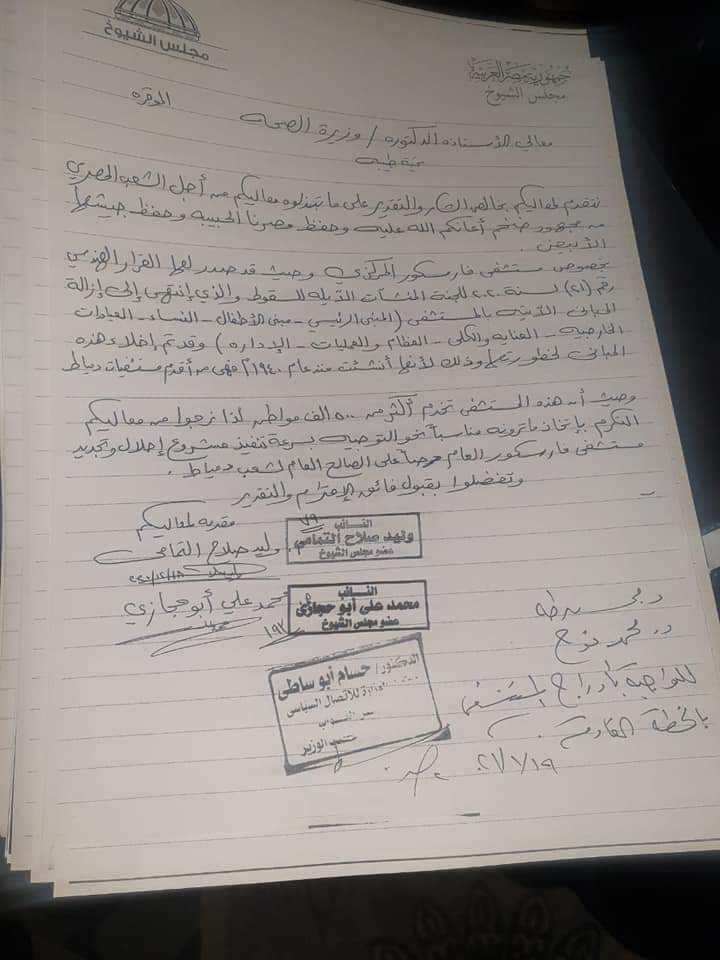 مجلس الشيوخ
جمهورية مصر العربية
مجلس الشيوخ
معالي الأستاذه الدكتوره / وزيرة الصحه الموقره
تحية طيبه
نتقدم لمعاليكم بخالص الشكر والتقدير على ما تبذلوه معاليكم من أجل الشعب المصري
من مجهود ضخم أعانكم الله عليه وحفظ مصرنا الحبيبه وحفظ جيشها
الأبيض.
بخصوص مستشفى فارسكور المركزي وحيث قد صدر لها القرار الهندسي
رقم (٢١) لسنة ٢٠٢٠ للجنة المنشآت الآيله للسقوط والذي إنتهى إلى إزالة
المباني الآتيه بالمستشفى (المبنى الرئيسي - مبنى الأطفال - النساء - العيادات
الخارجيه - العنايه والكلى - العظام والعمليات - الإداره) وقد تم إخلاء هذه
المباني لخطورتها وذلك لأنها أنشئت منذ عام ١٩٤٠م فهى من أقدم مستشفيات دمياط
وحيث أن هذه المستشفى تخدم أكثر من ٥٠٠ الف مواطن لذا نرجوا من معاليكم
التكرم بإتخاذ ما ترونه مناسباً نحو التوجيه بسرعة تنفيذ مشروع إحلال وتجديد
مستشفى فارسكور العام حرصاً على الصالح العام لشعب دمياط.
وتفضلوا بقبول فائق الإحترام والتقدير
مقدمه لمعاليكم
٧٩
النائب
وليد صلاح التمامي
عضو مجلس الشيوخ
وليد صلاح التمامى
النائب
محمد على أبو حجازى
عضو مجلس الشيوخ
محمد علي أبو حجازي
١٩٧
الدكتور/ حسام أبو ساطى
للاتصال السياسى
النواب
مكتب الوزير
د. محمد فوزي
بإدراج المستشفى
بالخطة القادمة
٢١/١/١٩